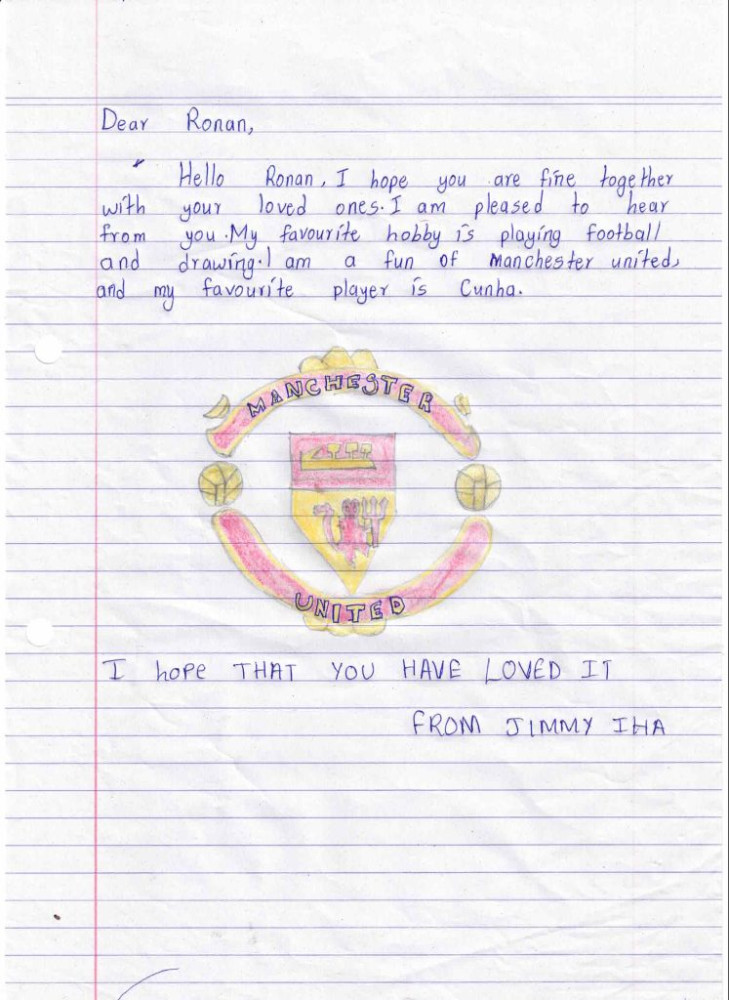 Dear Ronan,
Hello Ronan, I hope you are fine together
with your loved ones. I am pleased to hear
from you. My favourite hobby is playing football
and drawing. I am a fun of Manchester united,
and my favourite player is Cunha.
MANCHESTER
UNITED
I hope THAT YOU HAVE LOVED IT
FROM JIMMY IHA